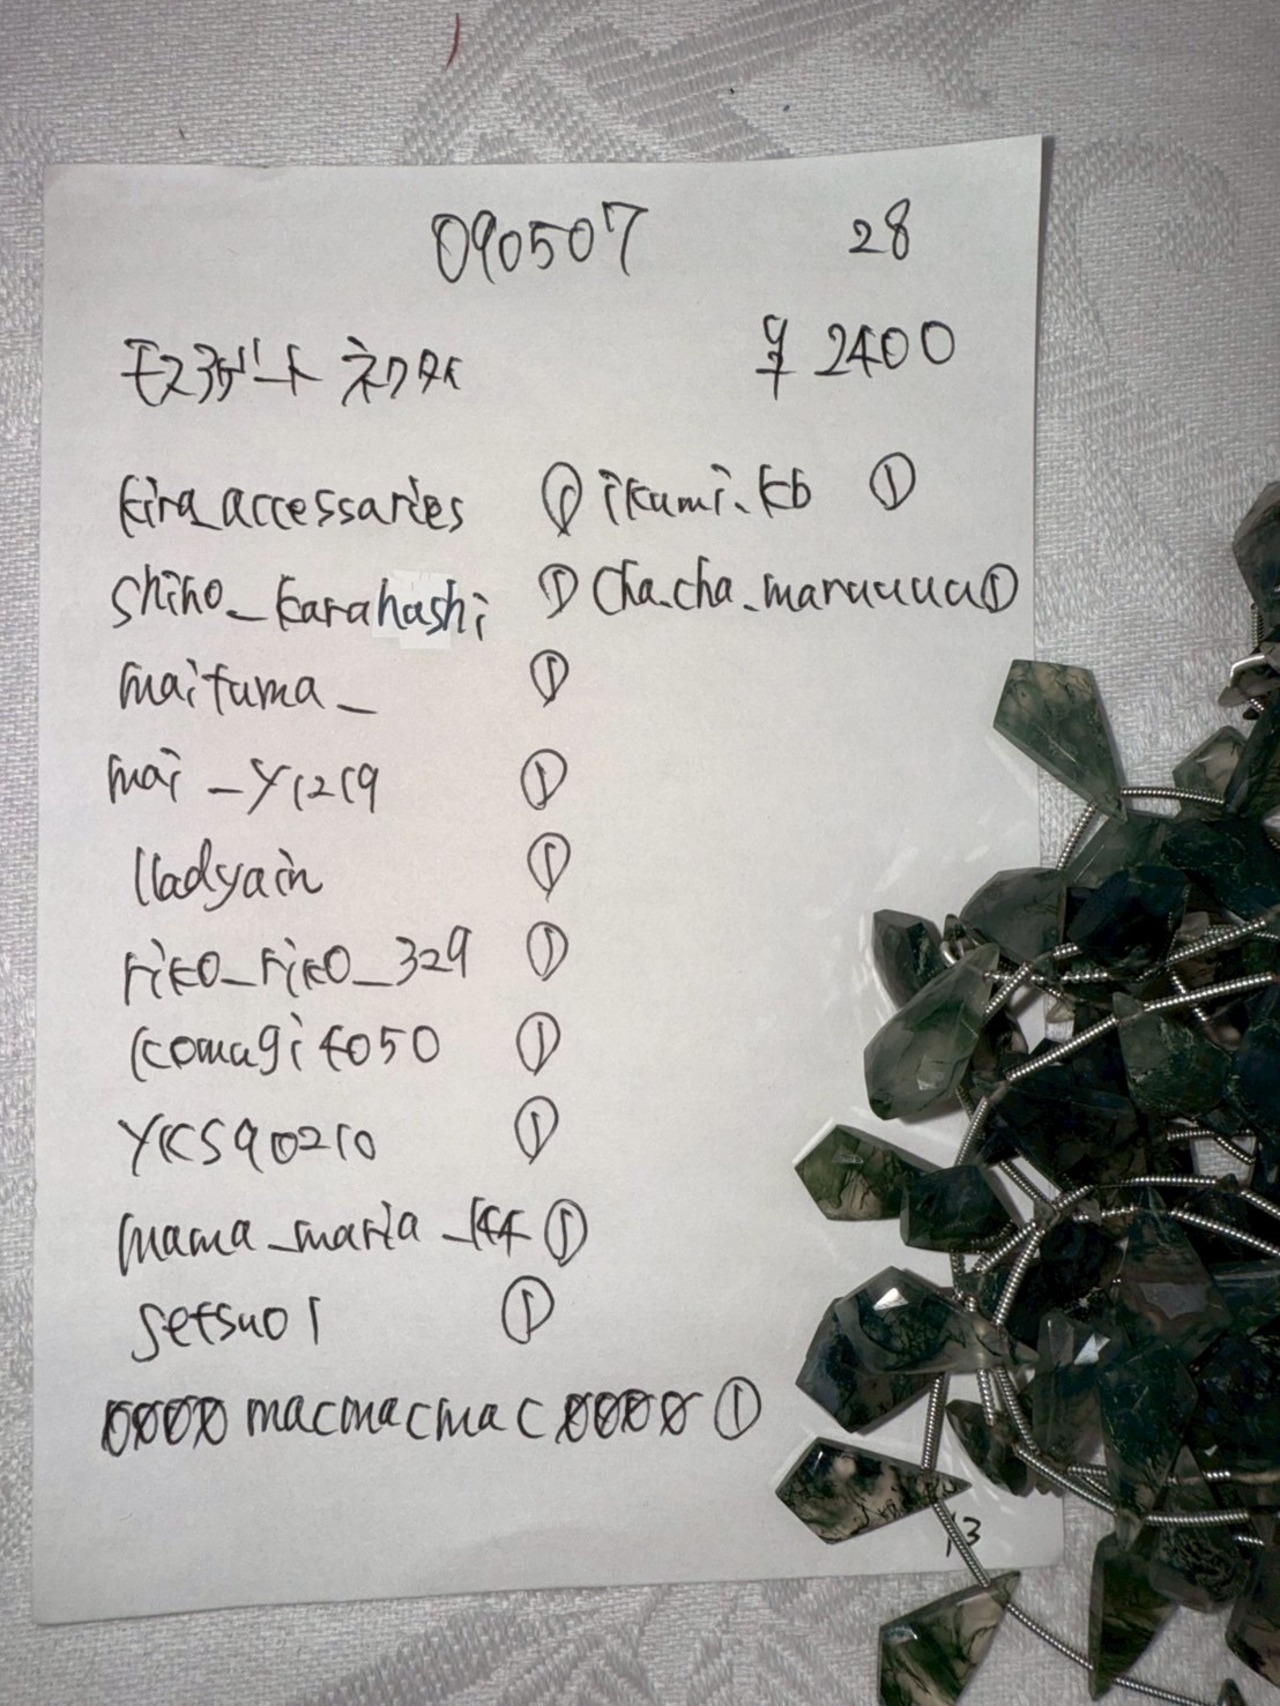 090507 28
モスアゲート ネクタイ ¥2400
kira_accessaries ① ikumi.kb ①
shiho_karahashi ① cha.cha.maruuuu ①
maituma_ ①
mai_y1219 ①
lladyain ①
riko_riko_329 ①
komagi4050 ①
YKS90210 ①
mama_maria_144 ①
setsuo1 ①
0000macmacmac0000 ①
13